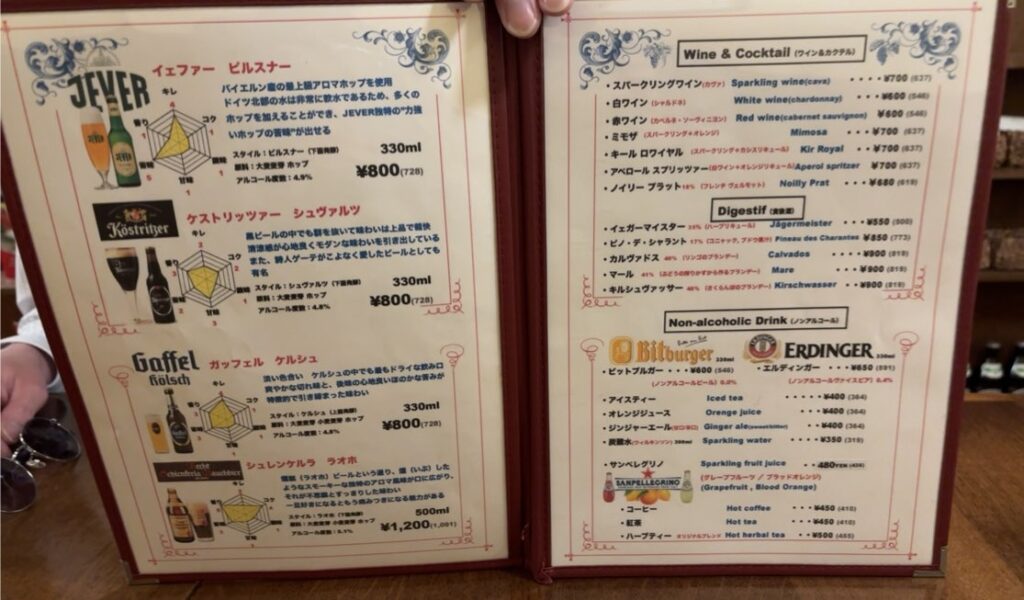 JEVER
イェファー ピルスナー
バイエルン産の最上級アロマホップを使用
ドイツ北部の水は非常に軟水であるため、多くの
ホップを加えることができ、JEVER独特の"力強
いホップの苦味"が出せる
キレ
4
コク
香り
1
1
酸味
苦味
5
1
甘味
1
スタイル:ピルスナー(下面発酵)
原料:大麦麦芽 ホップ
アルコール度数:4.9%
330ml
¥800(728)
Köstritzer
ケストリッツァー シュヴァルツ
黒ビールの中でも群を抜いて味わいは上品で軽快
清涼感が心地良くモダンな味わいを引き出している
また、詩人ゲーテがこよなく愛したビールとしても
有名
キレ
コク
甘味
スタイル:シュヴァルツ(下面発酵)
原料:大麦麦芽 ホップ
アルコール度数:4.8%
330ml
¥800(728)
Gaffel
Kölsch
ガッフェル ケルシュ
淡い色合い ケルシュの中でも最もドライな飲み口
爽やかな切れ味と、後味の心地良いほのかな苦みが
特徴的で引き締まった味わい
キレ
コク
甘味
スタイル:ケルシュ(上面発酵)
原料:大麦麦芽 小麦麦芽 ホップ
アルコール度数:4.8%
330ml
¥800(728)
シュレンケルラ ラオホ
燻製(ラオホ)ビールという通り、燻(いぶ)した
ようなスモーキーな独特のアロマ風味が口に広がり、
それが不思議とすっきりした味わい
一旦好きになるともう病みつきになる魅力がある
キレ
コク
甘味
スタイル:ラオホ(下面発酵)
原料:大麦麦芽 小麦麦芽 ホップ
アルコール度数:5.1%
500ml
¥1,200(1,091)
Wine & Cocktail (ワイン&カクテル)
・スパークリングワイン(カヴァ) Sparkling wine(cava) ・・・・¥700 (637)
・白ワイン (シャルドネ) White wine(chardonnay) ・・・・¥600 (546)
・赤ワイン (カベルネ・ソーヴィニヨン) Red wine(cabernet sauvignon) ・・¥600 (546)
・ミモザ (スパークリング+オレンジ) Mimosa ・・・¥700 (637)
・キール ロワイヤル (スパークリング+カシスリキュール) Kir Royal ・・・¥700 (637)
・アペロール スプリッツァー(白ワイン+オレンジリキュール)Aperol spritzer ¥700 (637)
・ノイリー プラット18% (フレンチ ヴェルモット) Noilly Prat ・・・・¥680 (619)
Digestif (食後酒)
・イェガーマイスター 35% (ハーブリキュール) Jägermeister ・・・¥550 (500)
・ピノ・デ・シャラント 17% (コニャック、ブドウ果汁) Pineau des Charantes ・¥850 (773)
・カルヴァドス 40% (リンゴのブランデー) Calvados ・・・・¥900 (819)
・マール 41% (ぶどうの搾りかすから作るブランデー) Marc ・・・・¥900 (819)
・キルシュヴァッサー 40% (さくらんぼのブランデー) Kirschwasser ・・・¥900 (819)
Non-alcoholic Drink (ノンアルコール)
Bitburger 330ml
ERDINGER 330ml
・ビットブルガー ・・¥600 (546)
(ノンアルコールビール) 0.0%
・エルディンガー ・・・・¥650 (591)
(ノンアルコールヴァイスビア) 0.4%
・アイスティー Iced tea ・・・・・¥400 (364)
・オレンジジュース Orenge juice ・・・・¥400 (364)
・ジンジャーエール(甘口/辛口) Ginger ale(sweet/bitter) ・・¥400 (364)
・炭酸水(ウィルキンソン) 300ml Sparkling water ・・・・¥350 (319)
・サンペレグリノ Sparkling fruit juice ・・480YEN (436)
SANPELLEGRINO
(グレープフルーツ / ブラッドオレンジ)
(Grapefruit , Blood Orange)
・コーヒー Hot coffee ・・・¥450 (410)
・紅茶 Hot tea ・・・¥450 (410)
・ハーブティー オリジナルブレンド Hot herbal tea ・・¥500 (455)